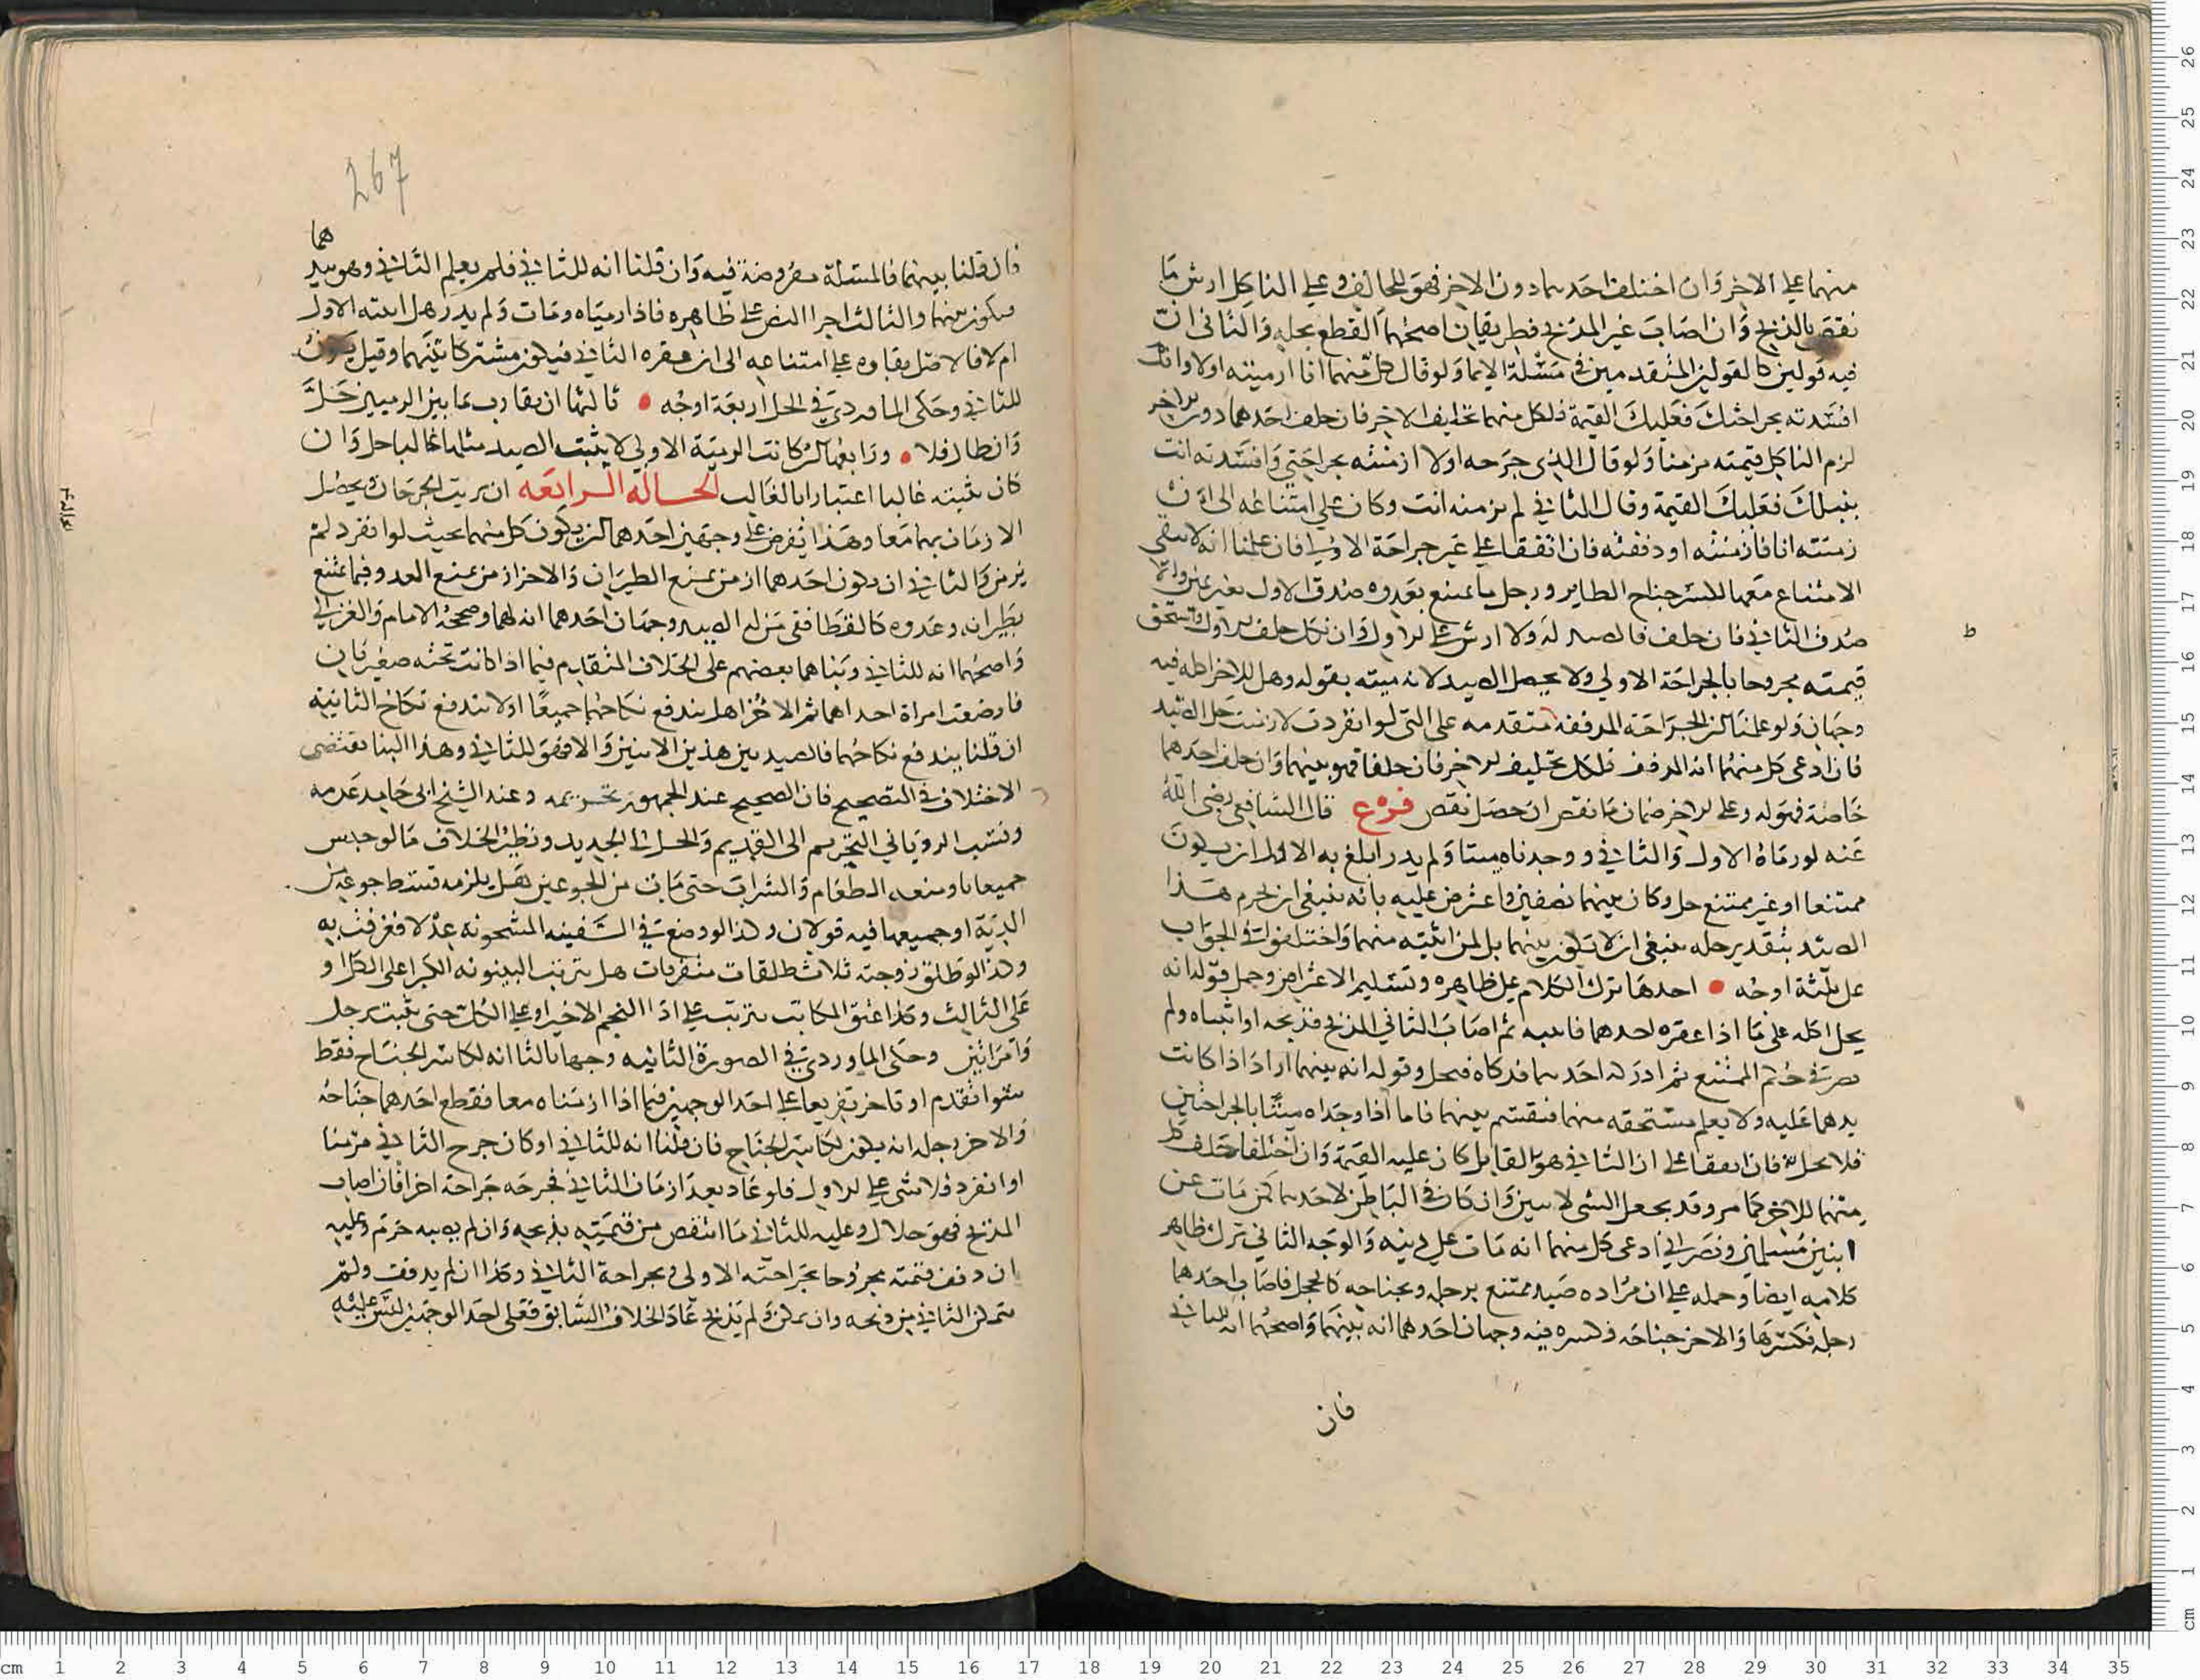 منهما على الاخر وان اختلف احدهما دون الاخر فهو للحالف وعلى الناكل ارش ما
نقص بالذبح وان اصاب غير المذبح فطريقان اصحهما القطع بحله والثاني ان
فيه قولين كالقولين المتقدمين في مسئلة الانما ولو قال كل منهما انا ازمنته اولا وانت
افسدته بجراحتك فعليك القيمة فلكل منهما تحليف الاخر فان حلف احدهما دون الاخر
لزم الناكل قيمته مزمنا ولو قال الذي جرحه اولا ازمنته بجراحتي وافسدته انت
بقتلك فعليك القيمة وقال الثاني لم تزمنه انت وكان على امتناعه الى ان
زمنته انا فازمنته او دففته فان اتفقا على عين جراحة الاولى فان علمنا انه لا يبقى
الامتناع معها لكسر جناح الطاير ورجل ما يمتنع بعدوه صدق الاول بغير يمين والا
صدق الثاني فان حلف فالصيد له ولا ارش على الاول وان نكل حلف الاول واستحق
قيمته مجروحا بالجراحة الاولى ولا يحل الصيد لانه ميته بقوله وهل للاخر اكله فيه
وجهان ولو علمنا ان الجراحة المدففة متقدمه على التي لو انفردت لازمنت حل الصيد
فان ادعى كل منهما انه المدفف فلكل تحليف الاخر فان حلفا فهو بينهما وان حلف احدهما
خاصة فهو له وعلى الاخر ضمان ما نقص ان حصل نقص فرع قال الشافعي رضي الله
عنه لو رماه الاول والثاني ووجدناه ميتا ولم يدر ابلغ به الاول ان يكون
ممتنعا او غير ممتنع حل وكان بينهما نصفين واعترض عليه بانه ينبغي ان يحرم هذا
الصيد بتقدير حله ينبغي ان لا يكون بينهما بل لمن اثبته منهما واختلفوا في الجواب
على ثلثة اوجه احدها ترك الكلام على ظاهره وتسليم الاعتراض وحمل قوله انه
يحل اكله على ما اذا عقره احدهما فاثبته ثم اصاب الثاني المذبح فذبحه او اثبتاه ولم
يصر في حكم الممتنع ثم ادركه احدهما فذكاه فيحل وقوله انه بينهما اراد اذا كانت
يدهما عليه ولا يعلم مستحقه منهما فيقسم بينهما فاما اذا وجداه ميتا بالجراحتين
فلا يحل فان اتفقا على ان الثاني هو القاتل كان عليه القيمة وان اختلفا حلف كل
منهما للاخر كما مر وقد يجعل الشي لاثنين وان كان في الباطن لاحدهما كمن مات عن
ابنين مسلم ونصراني ادعى كل منهما انه مات على دينه والوجه الثاني ترك ظاهر
كلامه ايضا وحمله على ان مراده صيد ممتنع برجله وبجناحه كالحجل فاصاب احدهما
رجله فكسرها والاخر جناحه فكسره فيه وجهان احدهما انه بينهما واصحهما انه للثاني
فان
ط
267
هما
فان قلنا بينهما فالمسئلة مفروضة فيه وان قلنا انه للثاني فلم يعلم الثاني وهو بيد
فيكون بينهما والثالث اجرا النص على ظاهره فاذا رمياه ومات ولم يدر هل اثبته الاول
ام لا فالاصل بقاوه على امتناعه الى ان عقره الثاني فيكون مشتركا بينهما وقيل يكون
للثاني وحكى الماوردي في الحل اربعة اوجه ثالثها ان تقارب ما بين الرميين حل
وان طال فلا ورابعها ان كانت الرمية الاولى لا يثبت الصيد مثلها غالبا حل وان
كان يثبته غالبا اعتبارا بالغالب الحالة الرابعة ان ترتب الجرحان ويحصل
الازمان بهما معا وهذا يفرض على وجهين احدهما ان يكون كل منهما بحيث لو انفرد لم
يزمن والثاني ان يكون احدهما ازمن بمنع الطيران والاخر ازمن بمنع العدو فيما يمتنع
بطيرانه وعدوه كالقطا ففي من له الصيد وجهان احدهما انه لهما وصححه الامام والغزالي
واصحهما انه للثاني وبناهما بعضهم على الخلاف المتقدم فيما اذا كانت تحته صغيرتان
فارضعت امراة احداهما ثم الاخرى هل يندفع نكاحهما جميعا او لا يندفع نكاح الثانية
ان قلنا يندفع نكاحهما فالصيد بين هذين الاثنين والا فهو للثاني وهذا البنا يقتضي
الاختلاف في التصحيح فان الصحيح عند الجمهور تحريمه وعند الشيخ ابي حامد عدمه
ونسب الروياني التحريم الى القديم والحل الى الجديد ونظير الخلاف ما لو حبس
جميعانا ومنعه الطعام والشراب حتى مات من الجوعين هل يلزمه قسط جوعه من
الدية او جميعها فيه قولان وكذا لو وضع في السفينه المشحونه عدلا فغرقت به
وكذا لو طلق زوجته ثلاث طلقات متفرقات هل يترتب البينونه الكبرا على الكل او
على الثالث وكذا عتق المكاتب يترتب على ادا النجم الاخير او على الكل حتى يثبت برجل
وامراتين وحكى الماوردي في الصورة الثانيه وجها ثالثا انه لكاسر الجناح فقط
سوا تقدم او تاخر تفريعا على احد الوجهين فيما اذا ازمناه معا فقطع احدهما جناحه
والاخر رجله انه يكون لكاسر الجناح فان قلنا انه للثاني او كان جرح الثاني مزمنا
او انفرد فلا شي على الاول فلو عاد بعد ازمان الثاني فجرحه جراحة اخرا فان اصاب
المذبح فهو حلال وعليه للثاني ما انتقص من قيمته بذبحه وان لم يصبه حرم وعليه
ان دفف قيمته مجروحا بجراحته الاولى وبجراحة الثاني وكذا ان لم يدفف ولم
يتمكن الثاني من ذبحه وان تمكن ولم يذبح عاد الخلاف السابق فعلى احد الوجهين ليس عليه